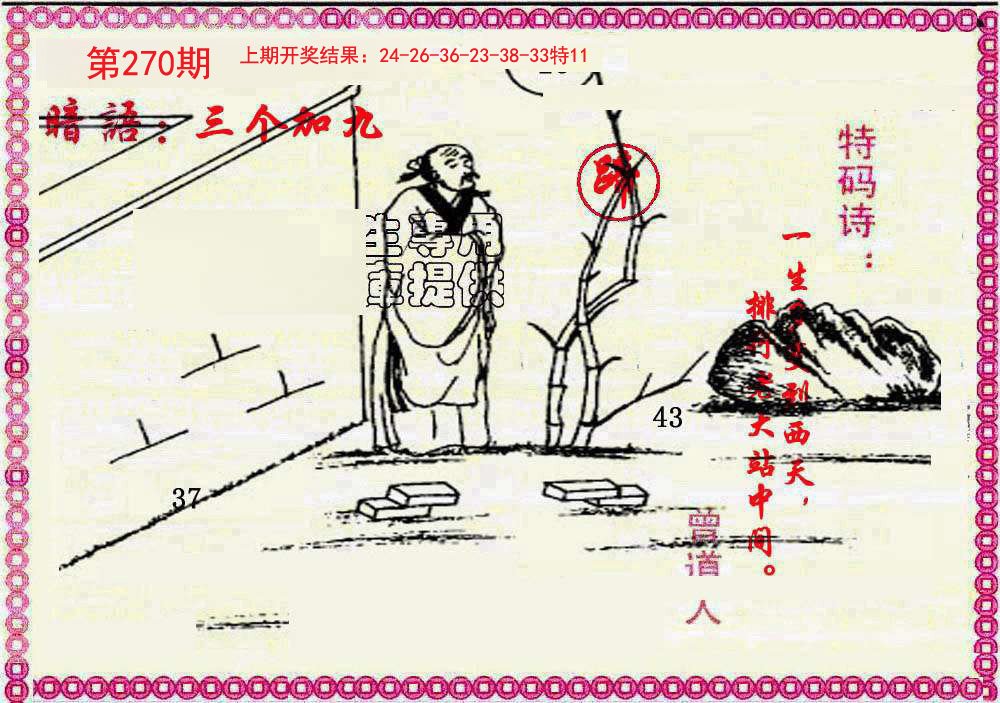 第270期
上期开奖结果：24-26-36-23-38-33特11
暗語：三个加九
特码诗：
一生
到西天，
排行老大站中间。
專用
提供
43
37
曾道人